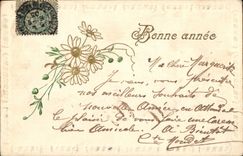 Bonne année
Ma chère Marguerite
Je viens vous présenter
nos meilleurs souhaits de
nouvelle Année en attendant
le plaisir de vous faire une caresse
bien amicale. A Bientôt